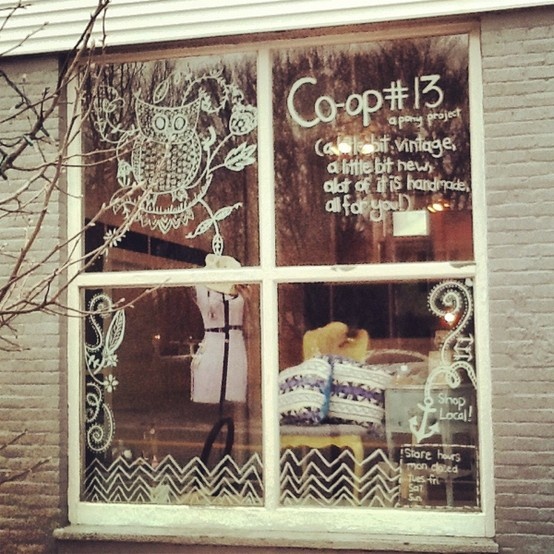 Co-op #13
a pony project
(a little bit, vintage,
a little bit new,
alot of it is handmade,
all for you!)
Shop
Local!
Store hours
mon closed
Tues-fri
Sat
Sun